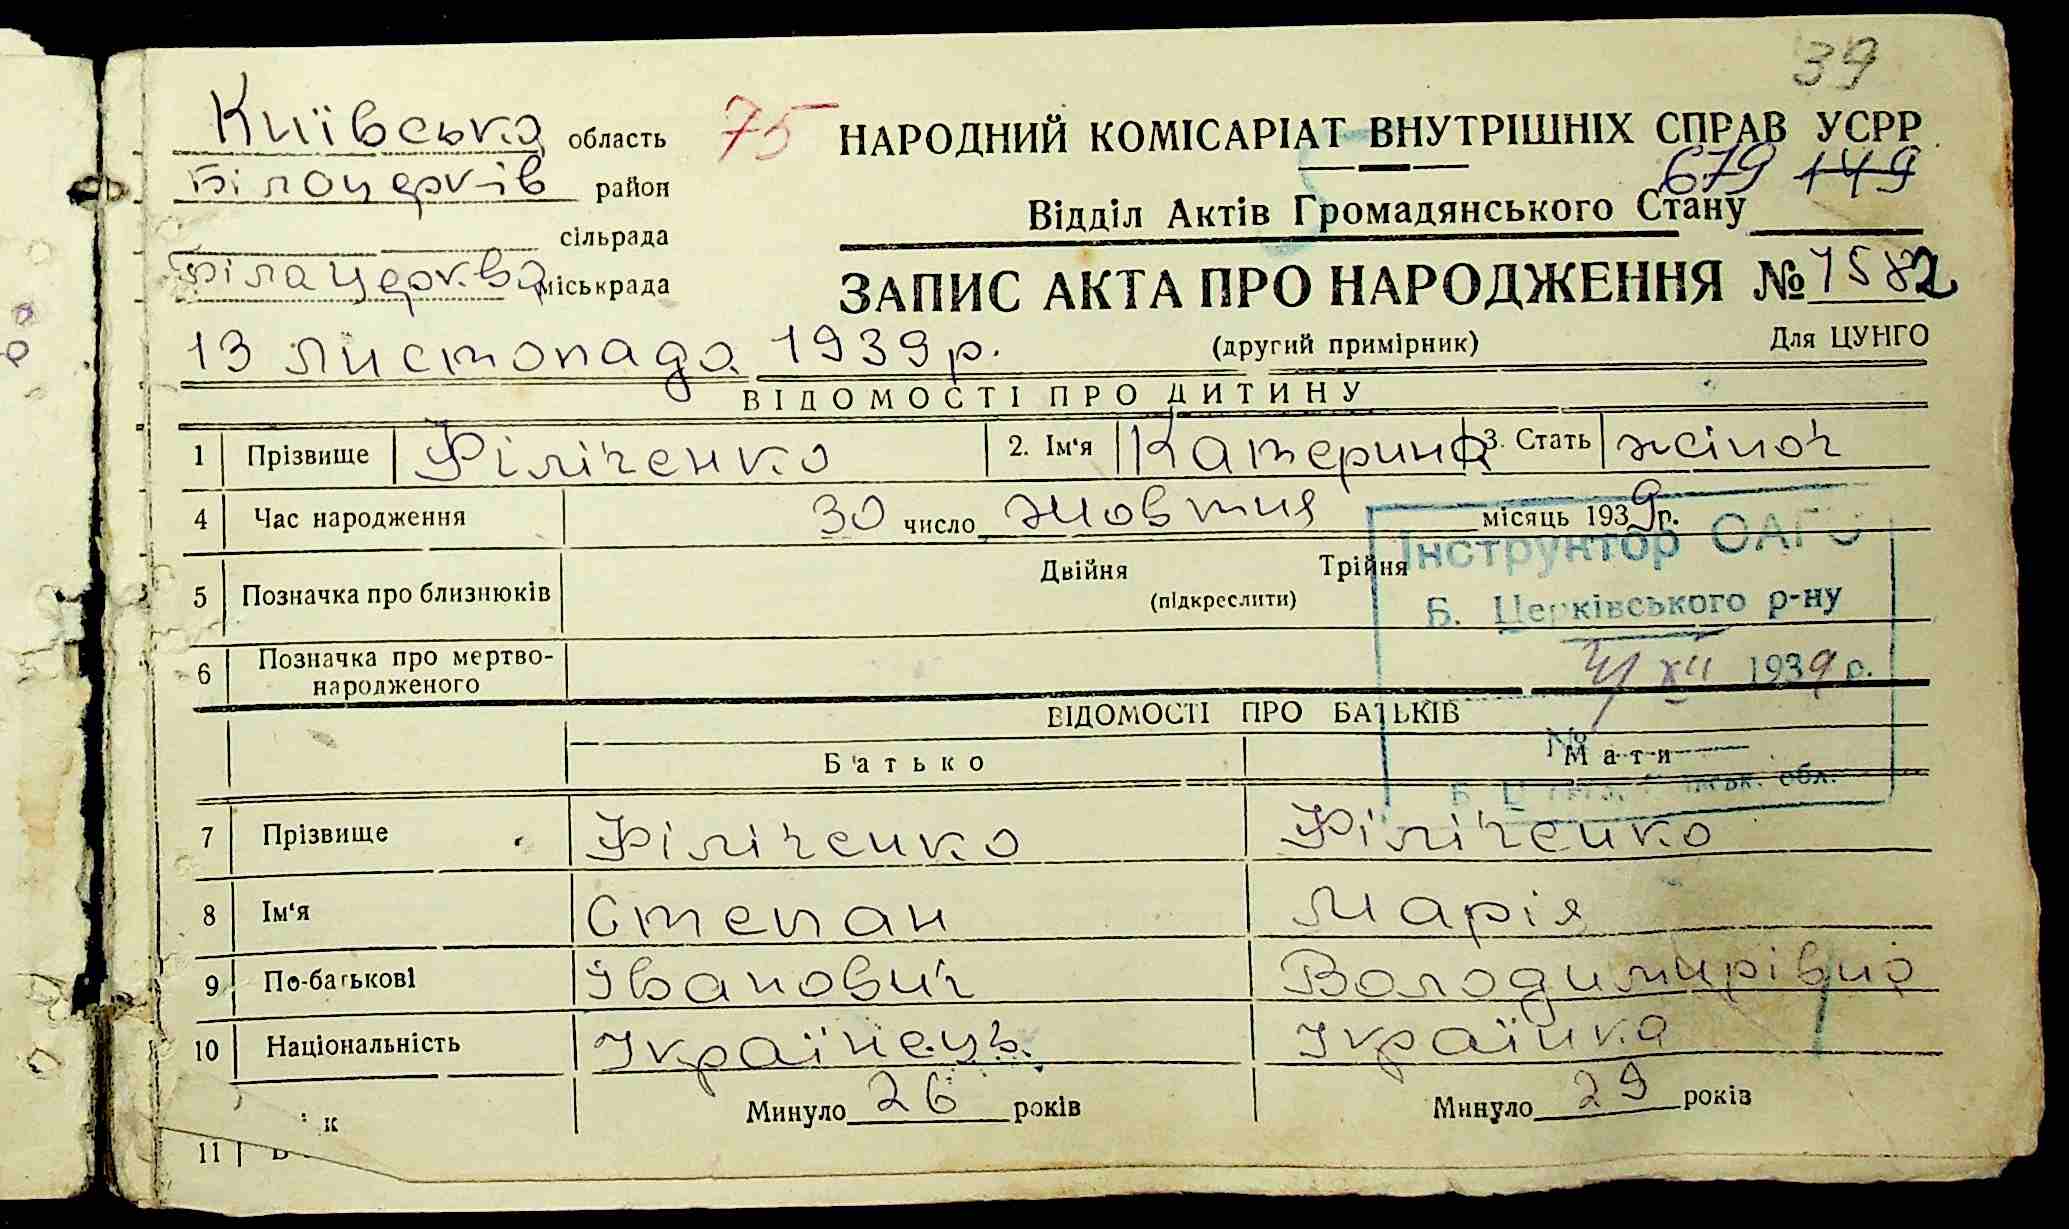 39
Київська область
75
НАРОДНИЙ КОМІСАРІАТ ВНУТРІШНІХ СПРАВ УСРР
Білоцерків район
679 149
Відділ Актів Громадянського Стану
сільрада
Білацерква міськрада
ЗАПИС АКТА ПРО НАРОДЖЕННЯ № 1582
13 листопада 1939 р.
(другий примірник) Для ЦУНГО
ВІДОМОСТІ ПРО ДИТИНУ
1 Прізвище Філіченко 2. Ім'я Катерина 3. Стать жіноч
4 Час народження 30 число Жовтня місяць 1939 р.
Інструктор ОАГС
5 Позначка про близнюків Двійня Трійня
(підкреслити)
Б. Церківського р-ну
6 Позначка про мертво-
народженого
XII 1939 р.
ВІДОМОСТІ ПРО БАТЬКІВ
№
Батько Мати
обл.
7 Прізвище Філіченко Філіченко
8 Ім'я Степан Марія
9 По-батькові Іванович Володимирівна
10 Національність Українець Українка
к Минуло 26 років Минуло 29 років
11